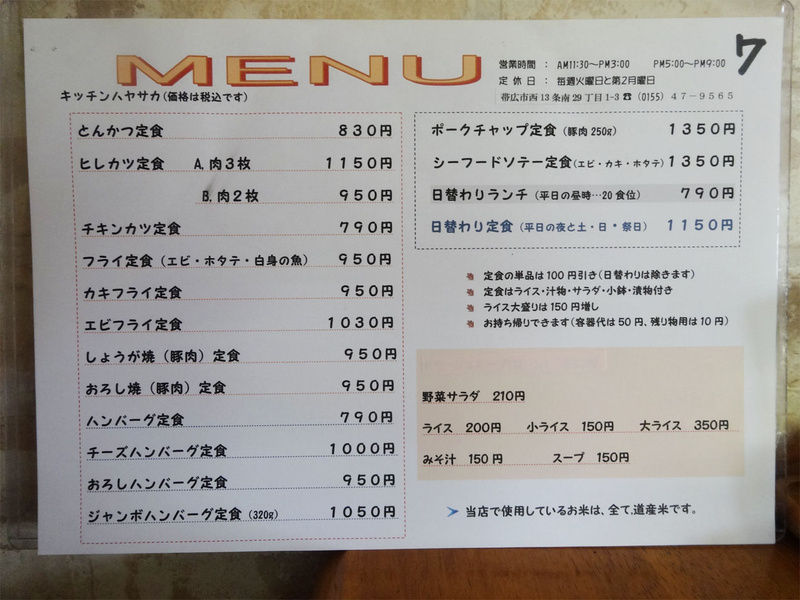 MENU
営業時間 : AM11:30～PM3:00 PM5:00～PM9:00
定 休 日 : 毎週火曜日と第2月曜日
キッチンハヤサカ(価格は税込です)
帯広市西13条南29丁目1-3 ☎ (0155) 47-9565
ワ
とんかつ定食 830円
ヒレカツ定食 A,肉3枚 1150円
B,肉2枚 950円
チキンカツ定食 790円
フライ定食(エビ・ホタテ・白身の魚) 950円
カキフライ定食 950円
エビフライ定食 1030円
しょうが焼(豚肉)定食 950円
おろし焼(豚肉)定食 950円
ハンバーグ定食 790円
チーズハンバーグ定食 1000円
おろしハンバーグ定食 950円
ジャンボハンバーグ定食(320g) 1050円
ポークチャップ定食(豚肉250g) 1350円
シーフードソテー定食(エビ・カキ・ホタテ) 1350円
日替わりランチ(平日の昼時…20食位) 790円
日替わり定食(平日の夜と土・日・祭日) 1150円
定食の単品は100円引き(日替わりは除きます)
定食はライス・汁物・サラダ・小鉢・漬物付き
ライス大盛りは150円増し
お持ち帰りできます(容器代は50円、残り物用は10円)
野菜サラダ 210円
ライス 200円 小ライス 150円 大ライス 350円
みそ汁 150円 スープ 150円
➢ 当店で使用しているお米は、全て,道産米です。